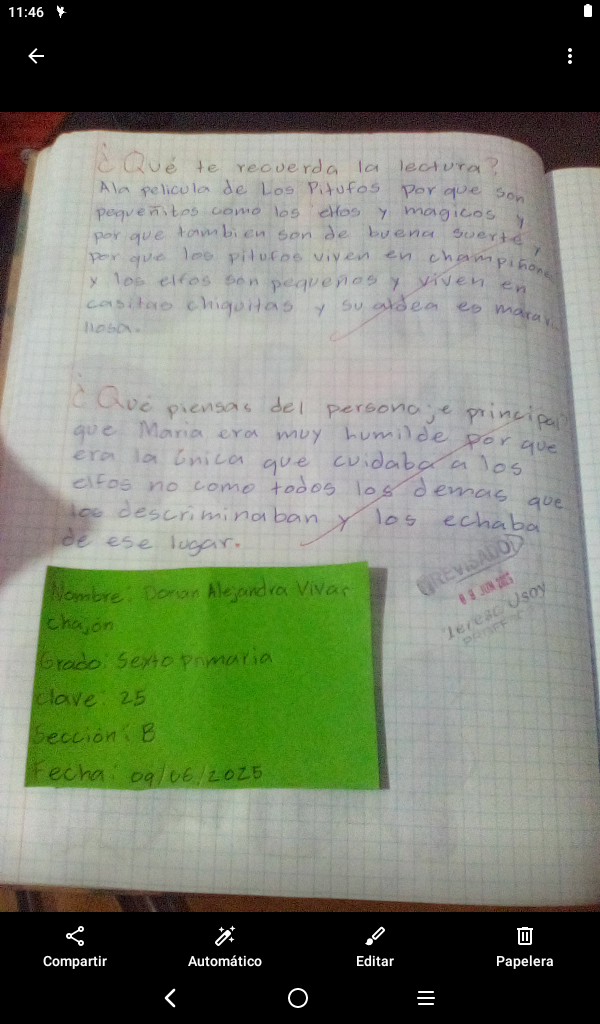 11:46
¿Qué te recuerda la lectura?
Ala pelicula de Los Pitufos por que son
pequeñitos como los elfos y magicos y
por que tambien son de buena suerte y
por que los pitufos viven en champiñone
y los elfos son pequeños y viven en
casitas chiquitas y su aldea es marav
llosa.
¿Qué piensas del personaje principal?
que Maria era muy humilde por que
era la única que cuidaba a los
elfos no como todos los demas que
los descriminaban y los echaba
de ese lugar.
REVISADO
JUN 2025
Teresa Usoy
Nombre: Dorian Alejandra Vivar
chajon
Grado: Sexto primaria
Clave: 25
Sección: B
Fecha: 09/06/2025
Compartir
Automático
Editar
Papelera